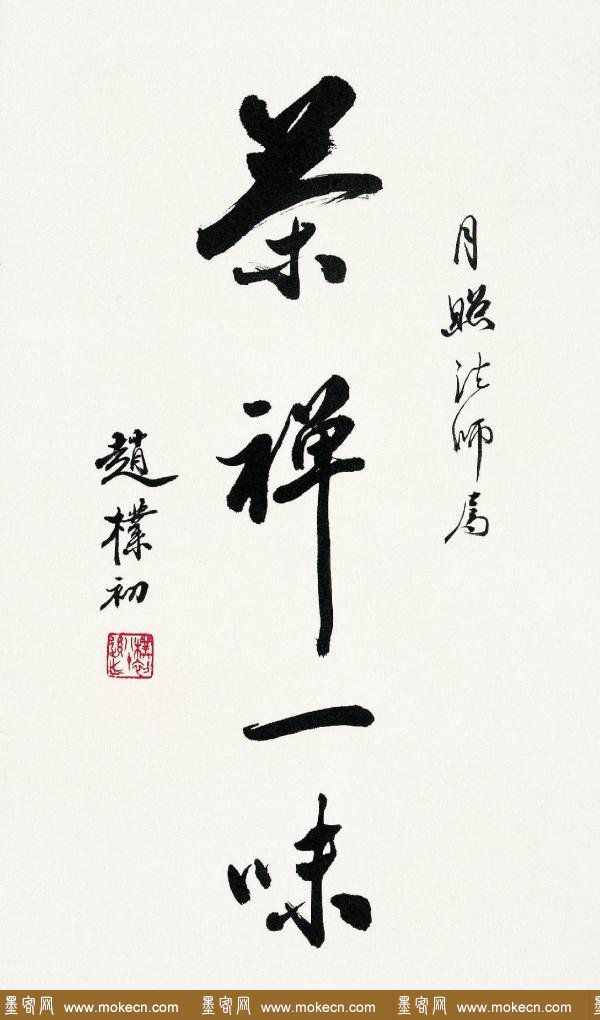 月照法师属
茶禅一味
趙樸初
墨客网 www.mokecn.com 墨客网 www.mokecn.com 墨客网 www.mokecn.com 墨